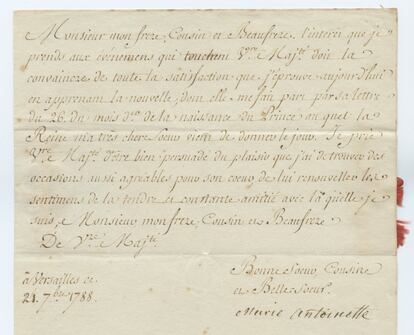 Monsieur mon frere, Cousin et Beaufrere, l'interêt que je
prends aux événemens qui touchent V.re Maj.té doit la
convaincre de toute la satisfaction que j'éprouve aujourd'hui
en apprenant la nouvelle, dont elle me fait part par sa lettre
du 26. du mois d.er de la naissance du Prince auquel la
Reine ma très chere Soeur vient de donner le jour. Je prie
V.re Maj.té d'être bien persuadé du plaisir que j'ai de trouver des
occasions aussi agréables pour son coeur de lui renouveller les
sentimens de la tendre et constante amitié avec laqüelle je
suis, Monsieur mon frere, Cousin et Beaufrere
De V.re Maj.té
à Versailles ce
21. 7.bre 1788.
Bonne Soeur, Cousine
et Belle Soeur,
Marie Antoinette